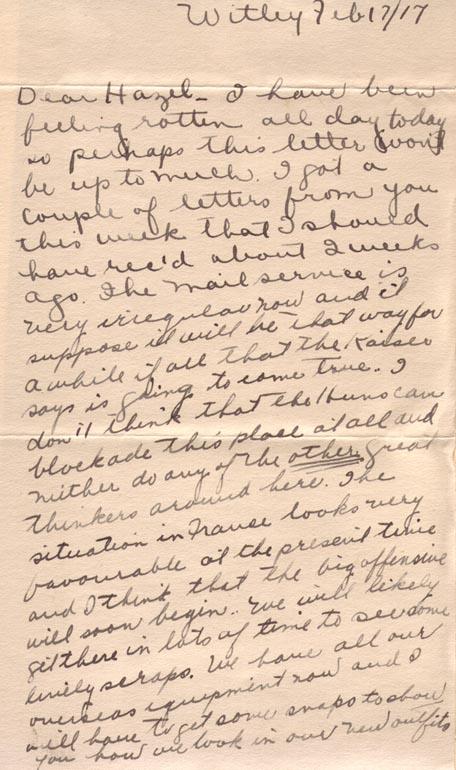 Witley Feb 17/17
Dear Hazel - I have been
feeling rotten all day today
so perhaps this letter won't
be up to much. I got a
couple of letters from you
this week that I should
have rec'd about 2 weeks
ago. The mail service is
very irregular now and I
suppose it will be that way for
a while if all that the Kaiser
says is going to come true. I
don't think that the Huns can
blockade this place at all and
neither do any of the other great
thinkers around here. The
situation in France looks very
favourable at the present time
and I think that the big offensive
will soon begin. We will likely
get there in lots of time to see some
lively scraps. We have all our
overseas equipment now and I
will have to get some snaps to show
you how we look in our new outfits